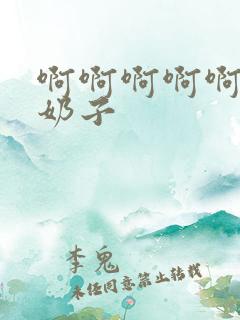 啊啊啊啊啊
奶子
李鬼
未经同意禁止转载